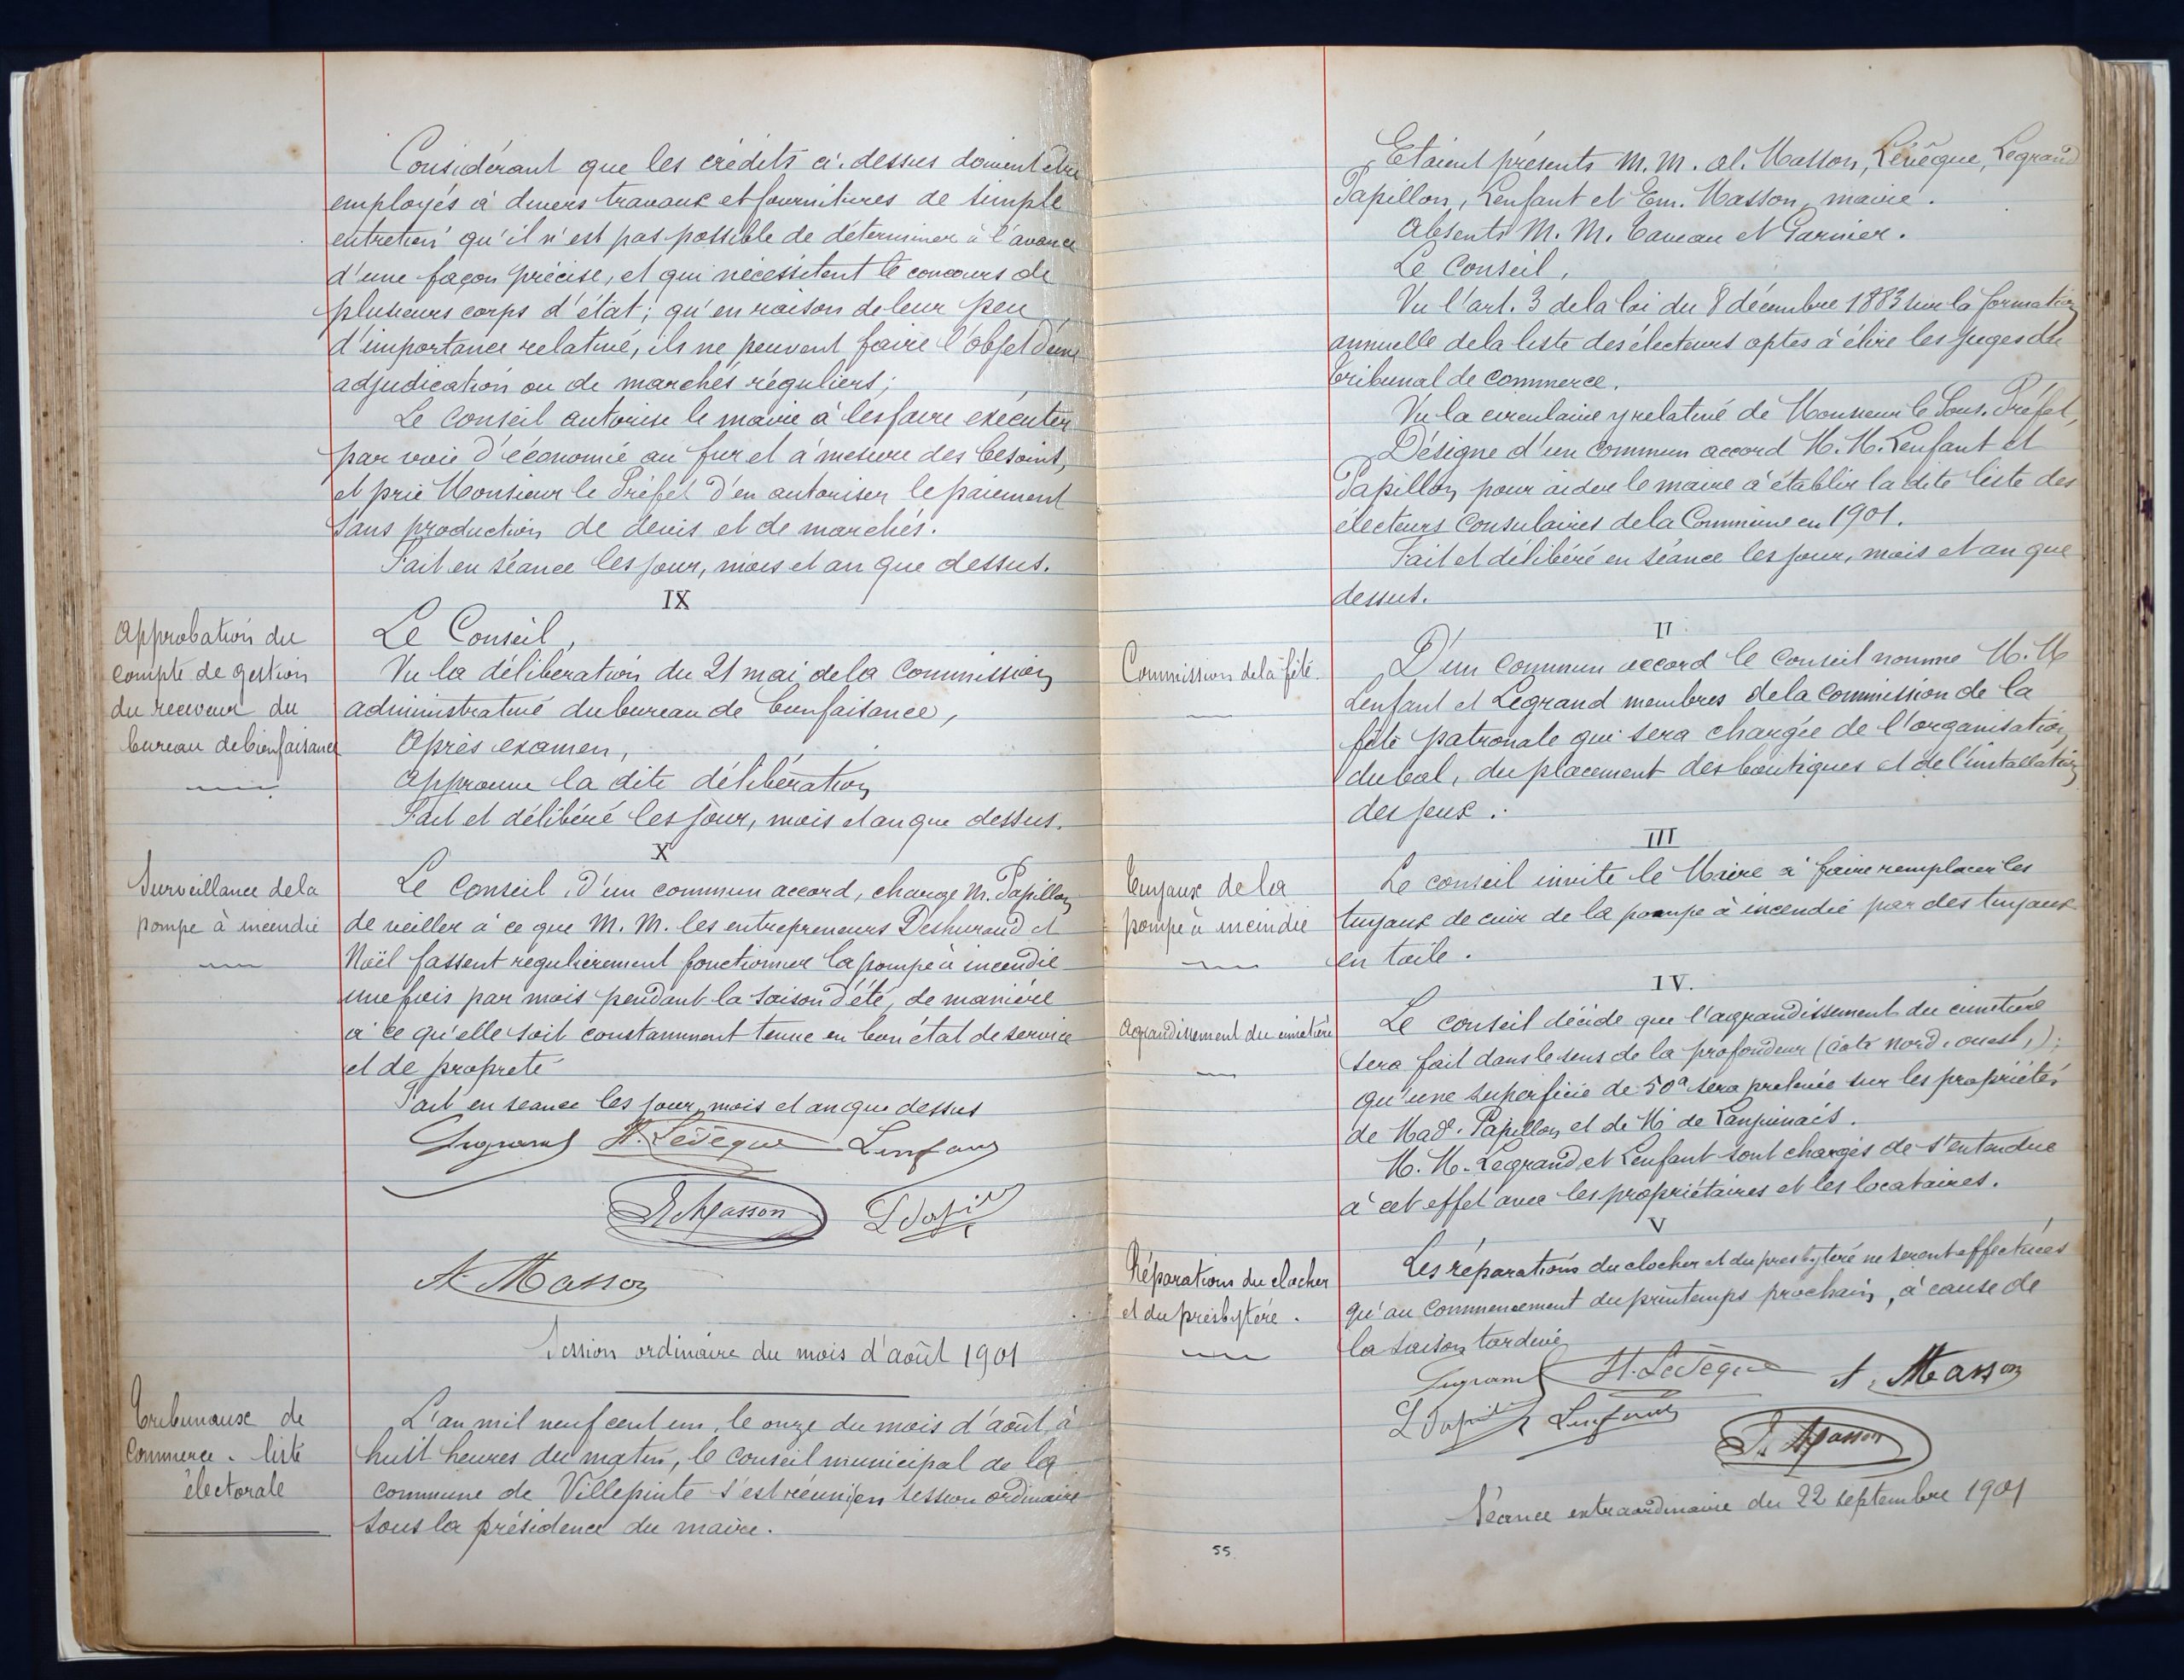 Considérant que les crédits ci-dessus doivent être
employés à divers travaux et fournitures de simple
entretien qu'il n'est pas possible de déterminer à l'avance
d'une façon précise, et qui nécessitent le concours de
plusieurs corps d'état; qu'en raison de leur peu
d'importance relative, ils ne peuvent faire l'objet d'une
adjudication ou de marchés réguliers;
Le Conseil autorise le maire à les faire exécuter
par voie d'économie au fur et à mesure des besoins,
et prie Monsieur le Préfet d'en autoriser le paiement
sans production de devis et de marchés.
Fait en séance les jour, mois et an que dessus.
IX
Approbation du
compte de gestion
du receveur du
bureau de bienfaisance
Le Conseil,
Vu la délibération du 21 mai de la Commission
administrative du bureau de bienfaisance,
Après examen,
Approuve la dite délibération
Fait et délibéré les jour, mois et an que dessus.
X
Surveillance de la
pompe à incendie
Le Conseil, d'un commun accord, charge M. Papillon
de veiller à ce que M. M. les entrepreneurs Deshuraud et
Noël fassent régulièrement fonctionner la pompe à incendie
une fois par mois pendant la saison d'été, de manière
à ce qu'elle soit constamment tenue en bon état de service
et de propreté
Fait en séance les jour, mois et an que dessus
Legrand H. Levêque Lenfant
E Masson L Papil
A. Masson
Session ordinaire du mois d'août 1901
Tribunaux de
Commerce. liste
électorale
L'an mil neuf cent un, le onze du mois d'août, à
huit heures du matin, le Conseil municipal de la
commune de Villepinte s'est réuni en session ordinaire
sous la présidence du maire.
Etaient présents M. M. Al. Masson, Lévêque, Legrand
Papillon, Lenfant et Em. Masson, maire.
Absents M. M. Caveau et Garnier.
Le Conseil,
Vu l'art. 3 de la loi du 8 décembre 1883 sur la formation
annuelle de la liste des électeurs aptes à élire les juges du
tribunal de commerce.
Vu la circulaire y relative de Monsieur le Sous-Préfet,
Désigne d'un commun accord M. M. Lenfant et
Papillon pour aider le maire à établir la dite liste des
électeurs consulaires de la Commune en 1901.
Fait et délibéré en séance les jour, mois et an que
dessus.
II
Commission de la fête.
D'un commun accord le Conseil nomme M. M
Lenfant et Legrand membres de la Commission de la
fête patronale qui sera chargée de l'organisation
du bal, du placement des boutiques et de l'installation
des jeux.
III
Tuyaux de la
pompe à incendie
Le conseil invite le Maire à faire remplacer les
tuyaux de cuir de la pompe à incendie par des tuyaux
en toile.
IV.
Agrandissement du cimetière
Le conseil décide que l'agrandissement du cimetière
sera fait dans le sens de la profondeur (côté nord-ouest,);
qu'une superficie de 50a sera prélevée sur les propriétés
de Made Papillon et de Mr de
M. M. Legrand et Lenfant sont chargés de s'entendre
à cet effet avec les propriétaires et les locataires.
V
Réparations du clocher
et du presbytère.
Les réparations du clocher et du presbytère ne seront effectuées
qu'au commencement du printemps prochain, à cause de
la saison tardive
Legrand H. Levêque A. Masson
L Papill Lenfant
E. Masson
Séance extraordinaire du 22 septembre 1901
55